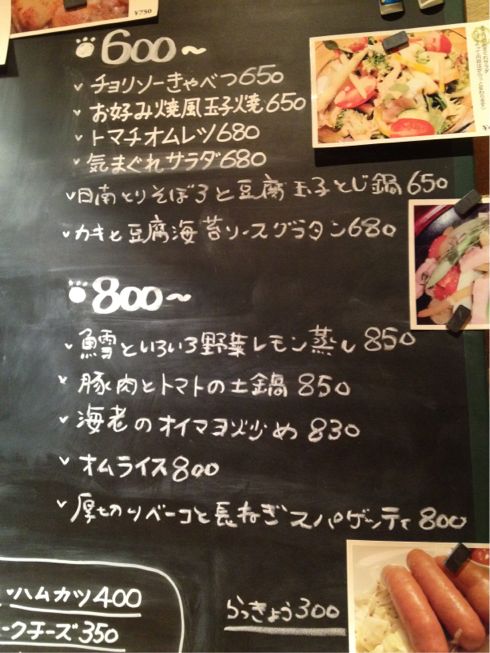 ¥750
600〜
チョリソーきゃべつ650
お好み焼風玉子焼650
トマチオムレツ680
気まぐれサラダ680
日南とりそぼろと豆腐玉子とじ鍋650
カキと豆腐海苔ソースグラタン680
800〜
鱈といろいろ野菜レモン蒸し850
豚肉とトマトの土鍋850
海老のオイマヨ炒め830
オムライス800
厚切りベーコンと長ねぎスパゲッティ800
ハムカツ400
ークチーズ350
らっきょう300